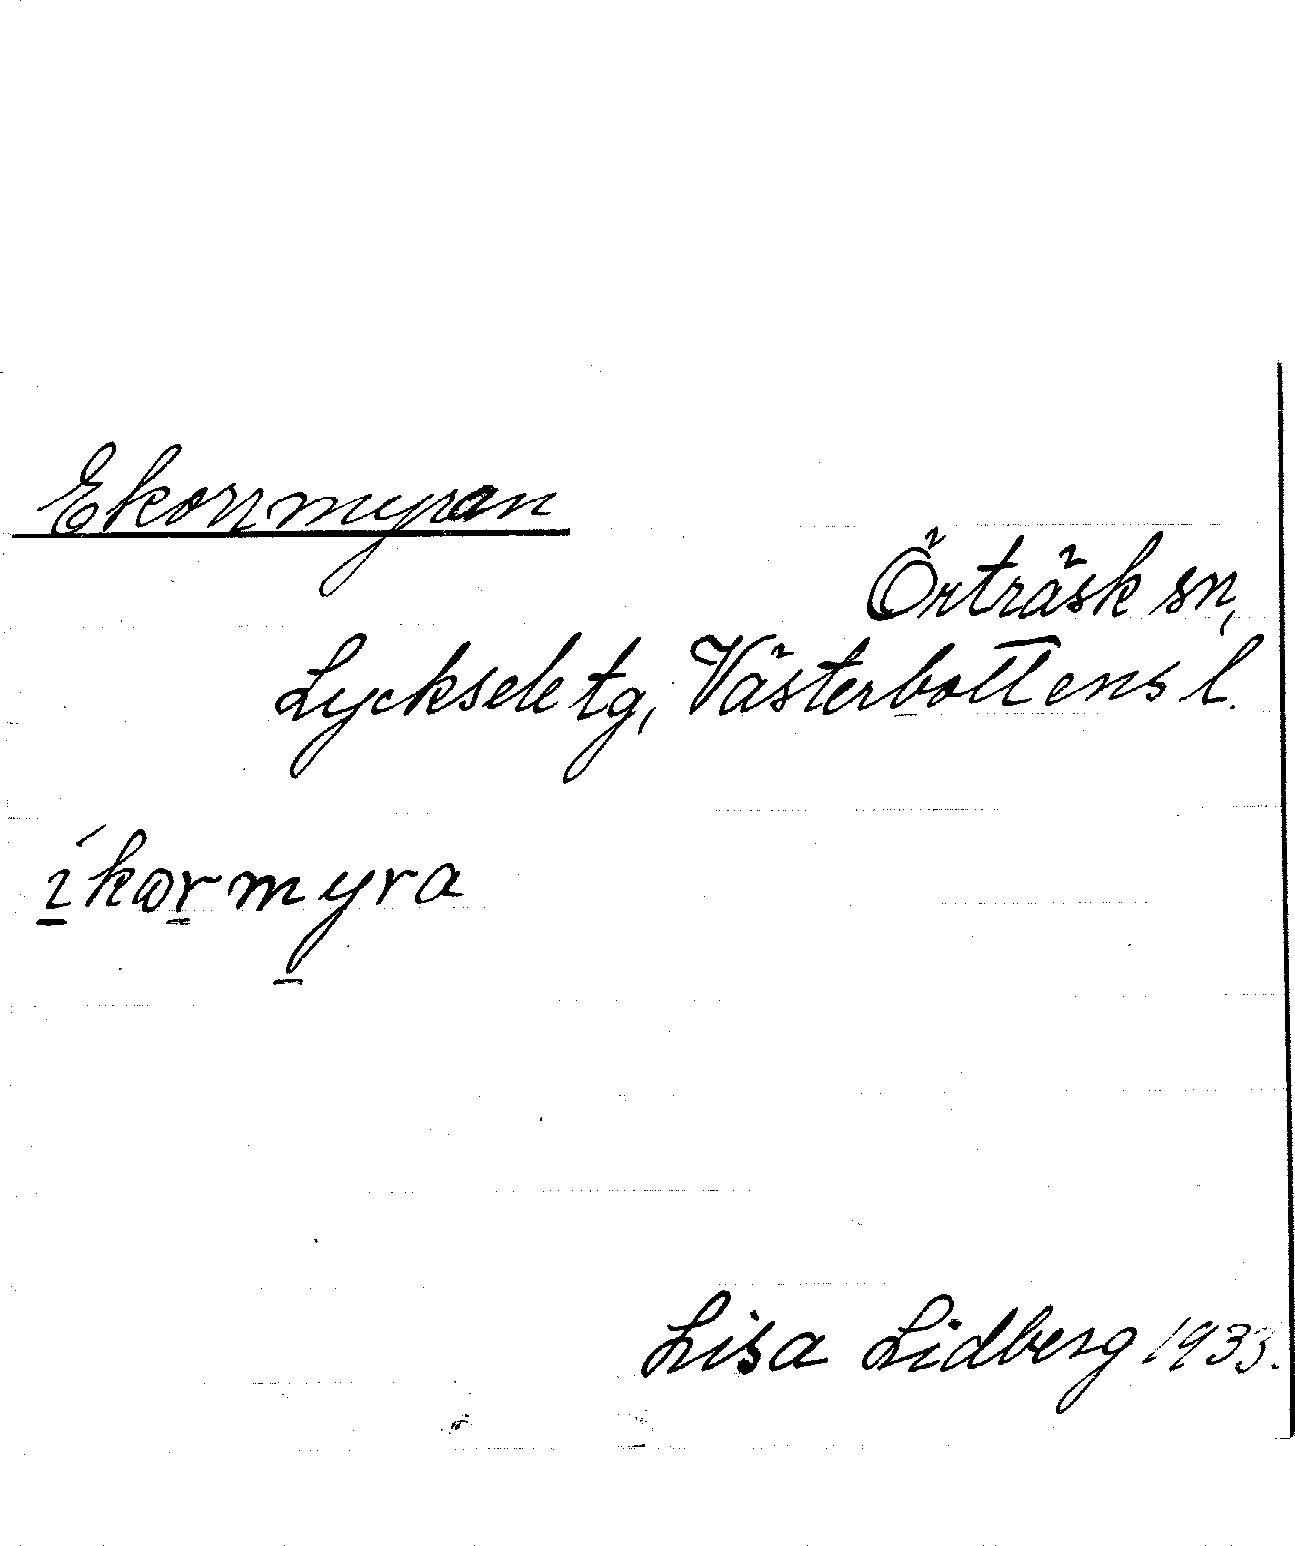 Ekorrmyran
Örträsk sn,
Lycksele tg, Västerbottens l.
íkɷrmyra
Lisa Lidberg 1933.